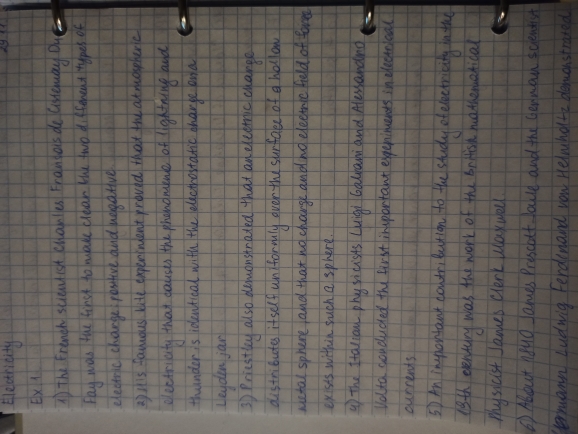 Electricity
Ex 1.
1) The French scientist Charles Fransois de Cisternay Du
Fay was the first to make clear the two different types of
electric charge positive and negative
2) His famous kite experiment proved that the atmospheric
electricity that causes the phenomena of lightning and
thunder is identical with the electrostatic charge on a
Leyden jar
3) Priestley also demonstrated that an electric charge
distributes itself uniformly over the surface of a hollow
metal sphere and that no charge and no electric field of force
exises within such a sphere.
4) The Italian physicists Luigi Galvani and Alessandro
Volta conducted the first important experiments in electrical
currents
5) An important contribution to the study of electricity in the
19th century was the work of the British mathematical
Physicist James Clerk Maxwell.
6) About 1840 James Prescott Joule and the German scientist
Hermann Ludwig Ferdinand von Helmholtz demonstrated